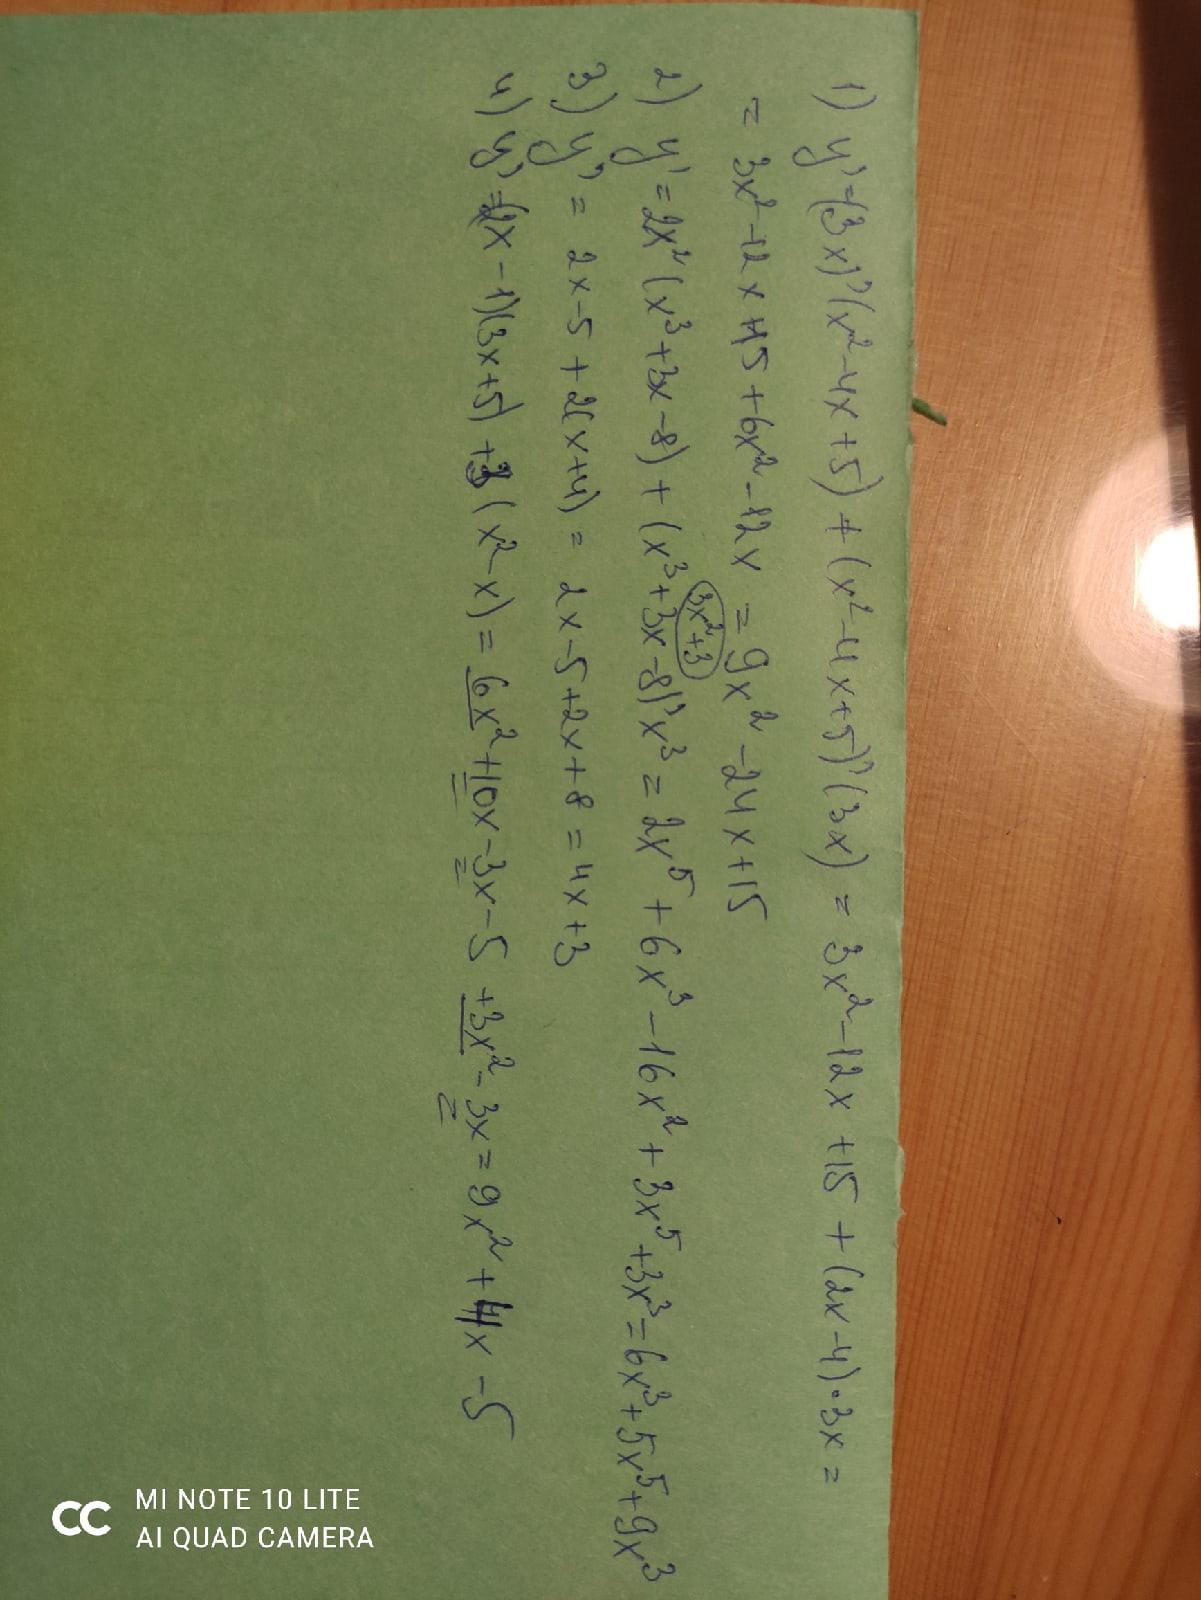 1) y'=(3x)'(x²-4x+5)+(x²-4x+5)'(3x) = 3x²-12x+15+(2x-4)·3x=
= 3x²-12x+15+6x²-12x = 9x²-24x+15
3x²+3
2) y'=2x²(x³+3x-8)+(x³+3x-8)'x³ = 2x⁵+6x³-16x²+3x⁵+3x³=6x³+5x⁵+9x³
3) y' = 2x-5+2(x+4) = 2x-5+2x+8=4x+3
4) y'=(2x-1)(3x+5)+3(x²-x)= 6x²+10x-3x-5+3x²-3x=9x²+4x-5
MI NOTE 10 LITE
AI QUAD CAMERA